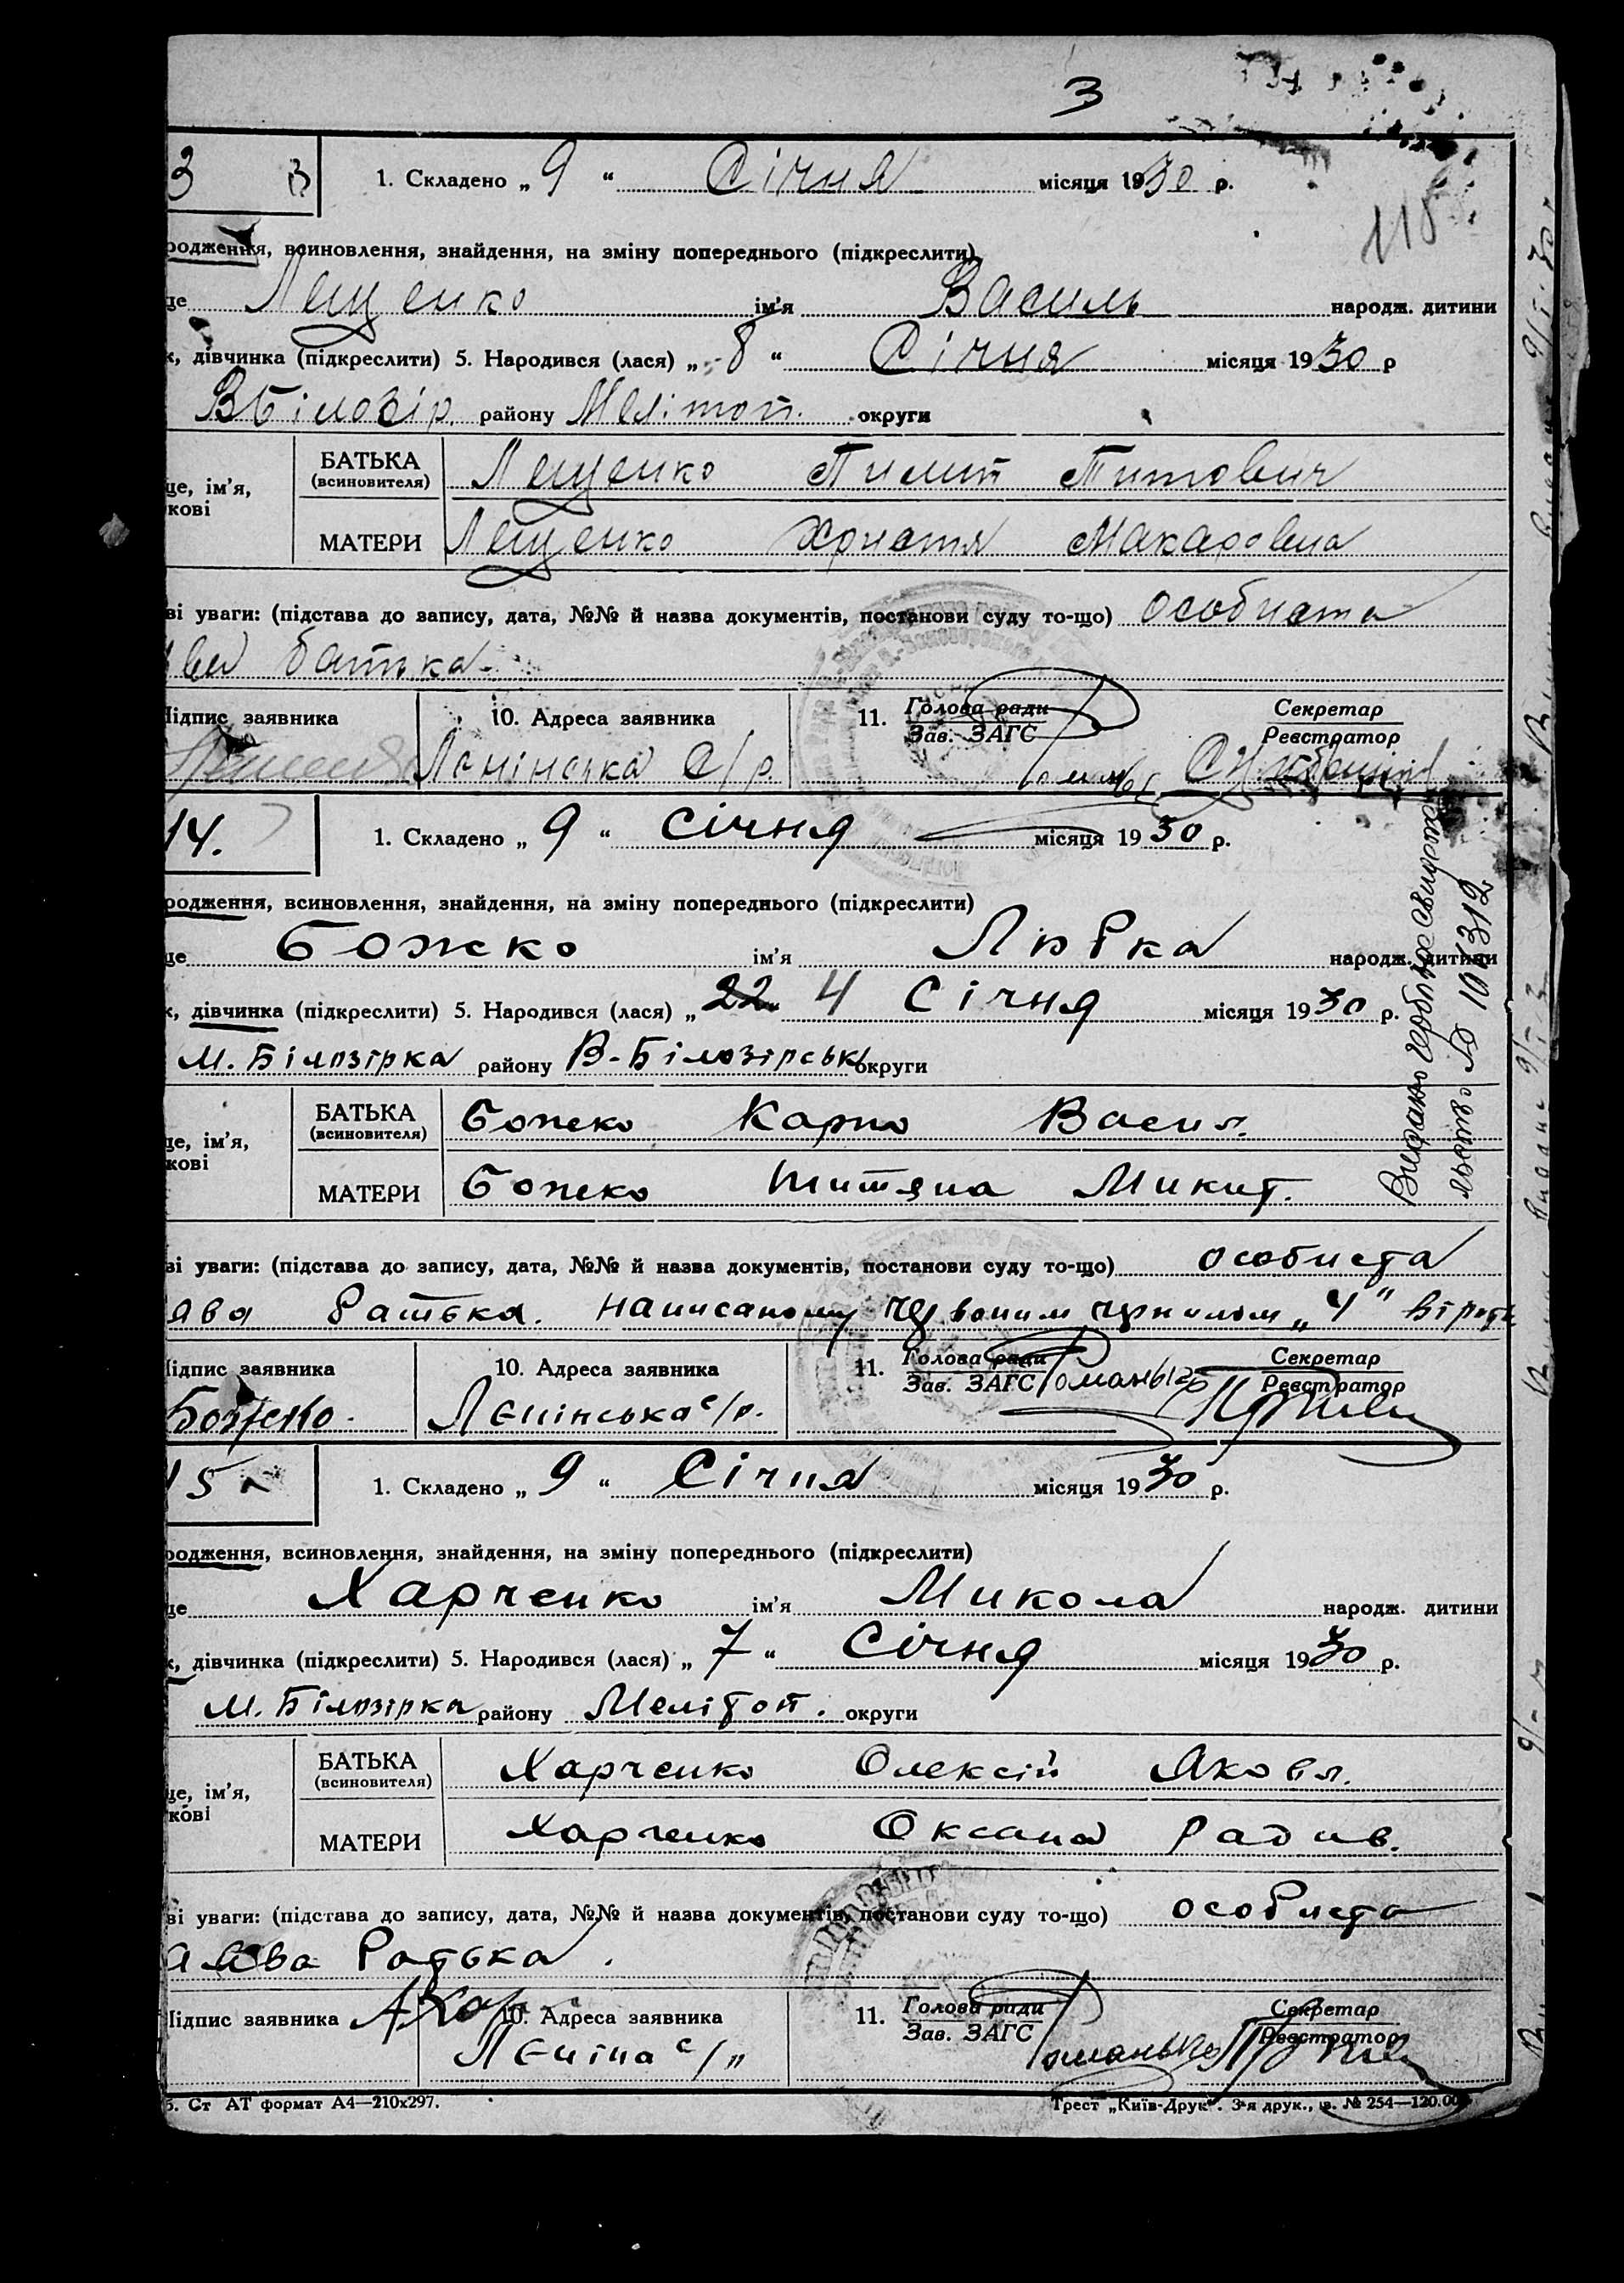 3
3 В 1. Складено „ 9 “ Січня місяця 1930 р.
118
родження, всиновлення, знайдення, на зміну попереднього (підкреслити)
це Лещенко ім'я Василь народж. дитини
к, дівчинка (підкреслити) 5. Народився (лася) „ 8 “ Січня місяця 1930 р
ВБілозір. району Меліտоп. округи
це, ім'я, кові БАТЬКА (всиновителя) Лещенко Пилип Титович
МАТЕРИ Лещенко Христя Макаровна
ві уваги: (підстава до запису, дата, №№ й назва документів, постанови суду то-що) особиста
ява батька
Підпис заявника 10. Адреса заявника 11. Голова ради Зав. ЗАГС Секретар Реєстратор
Ленінська С/р.
14. 1. Складено „ 9 “ Січня місяця 1930 р.
родження, всиновлення, знайдення, на зміну попереднього (підкреслити)
це Божко ім'я Любка народж. дитини
к, дівчинка (підкреслити) 5. Народився (лася) „ 22 4 Січня місяця 1930 р.
м. Білозірка району В-Білозірськ округи
це, ім'я, кові БАТЬКА (всиновителя) Божко Карпо Васил.
МАТЕРИ Божко Титяна Микит.
ві уваги: (підстава до запису, дата, №№ й назва документів, постанови суду то-що) особиста
ява батька. Написаному червоним чернилом „4“ вірить
Підпис заявника 10. Адреса заявника 11. Голова ради Зав. ЗАГС Секретар Реєстратор
Божко. Ленінська с/р. Романько
15 1. Складено „ 9 “ Січня місяця 1930 р.
родження, всиновлення, знайдення, на зміну попереднього (підкреслити)
це Харченко ім'я Микола народж. дитини
к, дівчинка (підкреслити) 5. Народився (лася) „ 7 “ Січня місяця 1930 р.
м. Білозірка району Мелітоп. округи
це, ім'я, кові БАТЬКА (всиновителя) Харченко Олексій Яковл.
МАТЕРИ Харченко Оксана Радив.
ві уваги: (підстава до запису, дата, №№ й назва документів, постанови суду то-що) особиста
заява батька.
Підпис заявника АХар 10. Адреса заявника 11. Голова ради Зав. ЗАГС Секретар Реєстратор
Леніна с/р Романько
5. Ст АТ формат А4—210х297. Трест „Київ-Друк“. 3-я друк., з. № 254—120.00